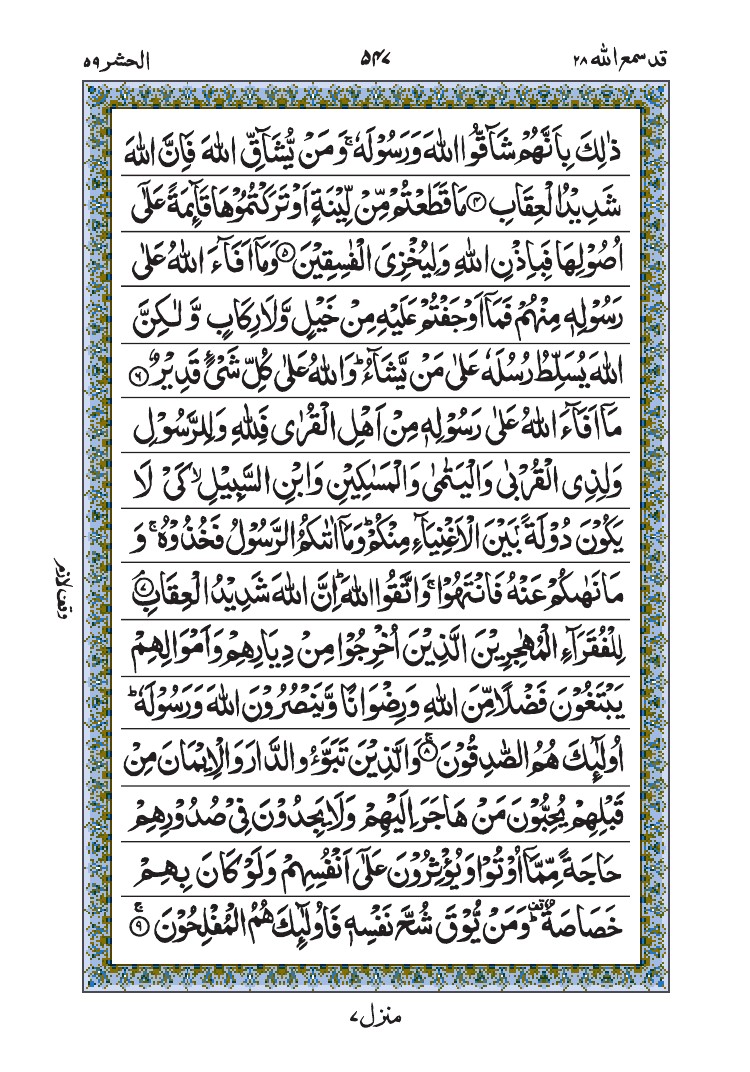 قد سمع الله ۲۸
۵۴۷
الحشر ۵۹
ذٰلِكَ بِاَنَّهُمْ شَآقُّوا اللّٰهَ وَرَسُوْلَهٗ ۚ وَمَنْ يُّشَآقِّ اللّٰهَ فَاِنَّ اللّٰهَ
شَدِيْدُ الْعِقَابِ ۴ مَا قَطَعْتُمْ مِّنْ لِّيْنَةٍ اَوْ تَرَكْتُمُوْهَا قَآئِمَةً عَلٰٓى
اُصُوْلِهَا فَبِاِذْنِ اللّٰهِ وَلِيُخْزِيَ الْفٰسِقِيْنَ ۵ وَمَآ اَفَآءَ اللّٰهُ عَلٰى
رَسُوْلِهٖ مِنْهُمْ فَمَآ اَوْجَفْتُمْ عَلَيْهِ مِنْ خَيْلٍ وَّلَا رِكَابٍ وَّلٰكِنَّ
اللّٰهَ يُسَلِّطُ رُسُلَهٗ عَلٰى مَنْ يَّشَآءُ ؕ وَاللّٰهُ عَلٰى كُلِّ شَيْءٍ قَدِيْرٌ ۶
مَآ اَفَآءَ اللّٰهُ عَلٰى رَسُوْلِهٖ مِنْ اَهْلِ الْقُرٰى فَلِلّٰهِ وَلِلرَّسُوْلِ
وَلِذِي الْقُرْبٰى وَالْيَتٰمٰى وَالْمَسٰكِيْنِ وَابْنِ السَّبِيْلِ ۙ كَيْ لَا
يَكُوْنَ دُوْلَةًۢ بَيْنَ الْاَغْنِيَآءِ مِنْكُمْ ؕ وَمَآ اٰتٰىكُمُ الرَّسُوْلُ فَخُذُوْهُ ۚ وَ
مَا نَهٰىكُمْ عَنْهُ فَانْتَهُوْا ۚ وَاتَّقُوا اللّٰهَ ؕ اِنَّ اللّٰهَ شَدِيْدُ الْعِقَابِ ۷
وقف لازم
لِلْفُقَرَآءِ الْمُهٰجِرِيْنَ الَّذِيْنَ اُخْرِجُوْا مِنْ دِيَارِهِمْ وَاَمْوَالِهِمْ
يَبْتَغُوْنَ فَضْلًا مِّنَ اللّٰهِ وَرِضْوَانًا وَّيَنْصُرُوْنَ اللّٰهَ وَرَسُوْلَهٗ ؕ
اُولٰٓئِكَ هُمُ الصّٰدِقُوْنَ ۸ ۚ وَالَّذِيْنَ تَبَوَّءُو الدَّارَ وَالْاِيْمَانَ مِنْ
قَبْلِهِمْ يُحِبُّوْنَ مَنْ هَاجَرَ اِلَيْهِمْ وَلَا يَجِدُوْنَ فِيْ صُدُوْرِهِمْ
حَاجَةً مِّمَّآ اُوْتُوْا وَيُؤْثِرُوْنَ عَلٰٓى اَنْفُسِهِمْ وَلَوْ كَانَ بِهِمْ
خَصَاصَةٌ ؕ وَمَنْ يُّوْقَ شُحَّ نَفْسِهٖ فَاُولٰٓئِكَ هُمُ الْمُفْلِحُوْنَ ۹ ۚ
منزل ۷